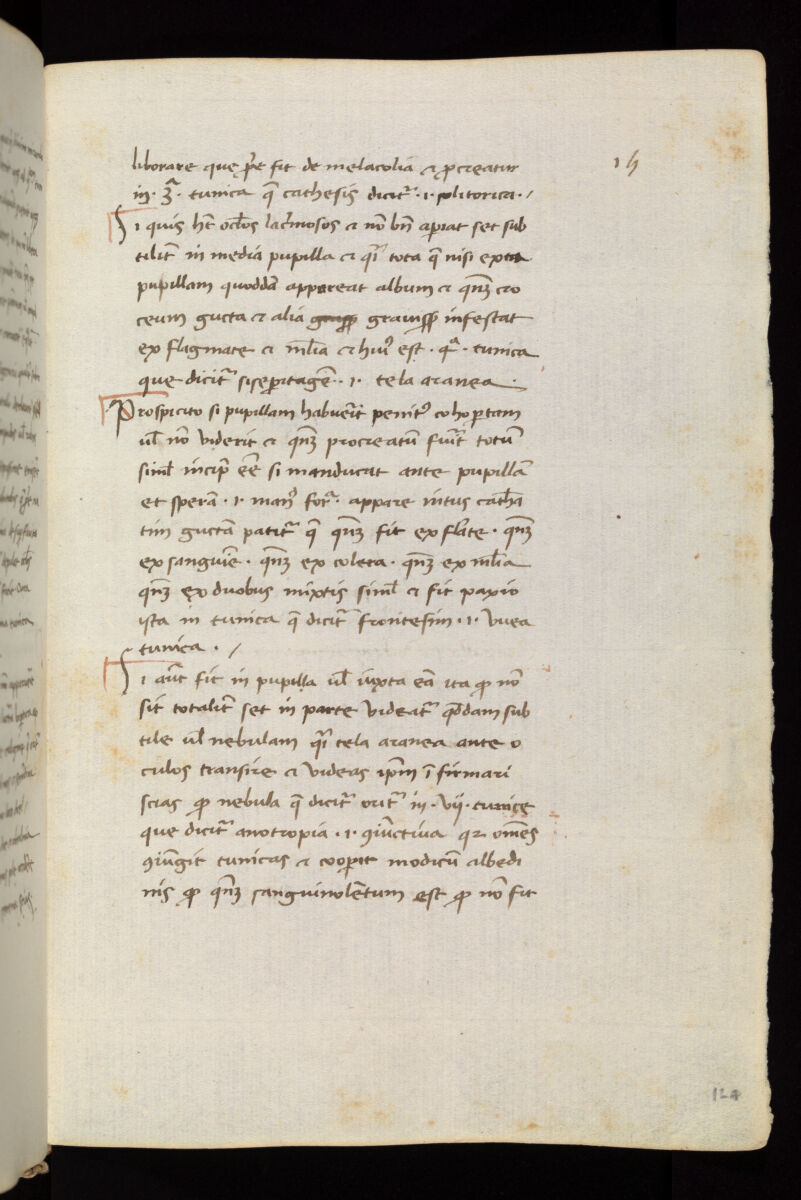 liborare quę p̃e fit de melācolia et ꝓcreatur
15
in · 3ᵃ · tunica q̃ cathesis dicit᷑ · i · solitorica · /
Si quis hr̃t oc̃los lac̃mosos et nõ bñ apiat set sub
tilit᷑ in media pupilla et q̃i tota q̃ nisi extra
pupillam quoddã appareat album et qñꝫ cro
ceum gucta et alia grauissp̃ infestat
ex flagmate et mĩlia et hui᷑ est · 4ᵃ · tunica
que dicit᷑ sisepitagẽ · i · tela aranea ·
Prospicito si pupillam habuerit penit᷑ cohoptam
ul̃ nõ viderit et qñꝫ procreatũ fuĩt totũ
siml̃ incip̃ eẽ si manducat ante pupillã
et sperã · i · man᷑ for᷑ · appare intus catha
tim guctã patit᷑ q̃ qñꝫ fit ex flãte · qñꝫ
ex sanguiẽ · qñꝫ ex colera · qñꝫ ex mĩlia
qñꝫ ex duobus mixtis siml̃ et fit paxio
ista in tunica q̃ dicit᷑ frontesim · i · vvea
tunica · /
Si aũt fit in pupilla ul̃ iuxta eã ita ꝙ nõ
sit totalit᷑ set in parte videat᷑ qddam sub
tile ul̃ nebulam q̃i tela aranea ante o
culos transire et videas ip̃m ĩ firmari
scias ꝙ nebula q̃ dicit᷑ orit᷑ in · vij · tunicę
que dicit᷑ anotropia · i · ꝯiũctiva qꝛ om̃es
ꝯiũgit tunicas et coopit modicũ albedi
nis ꝙ qñꝫ sanguinolẽtum est ꝙ nõ fit
124